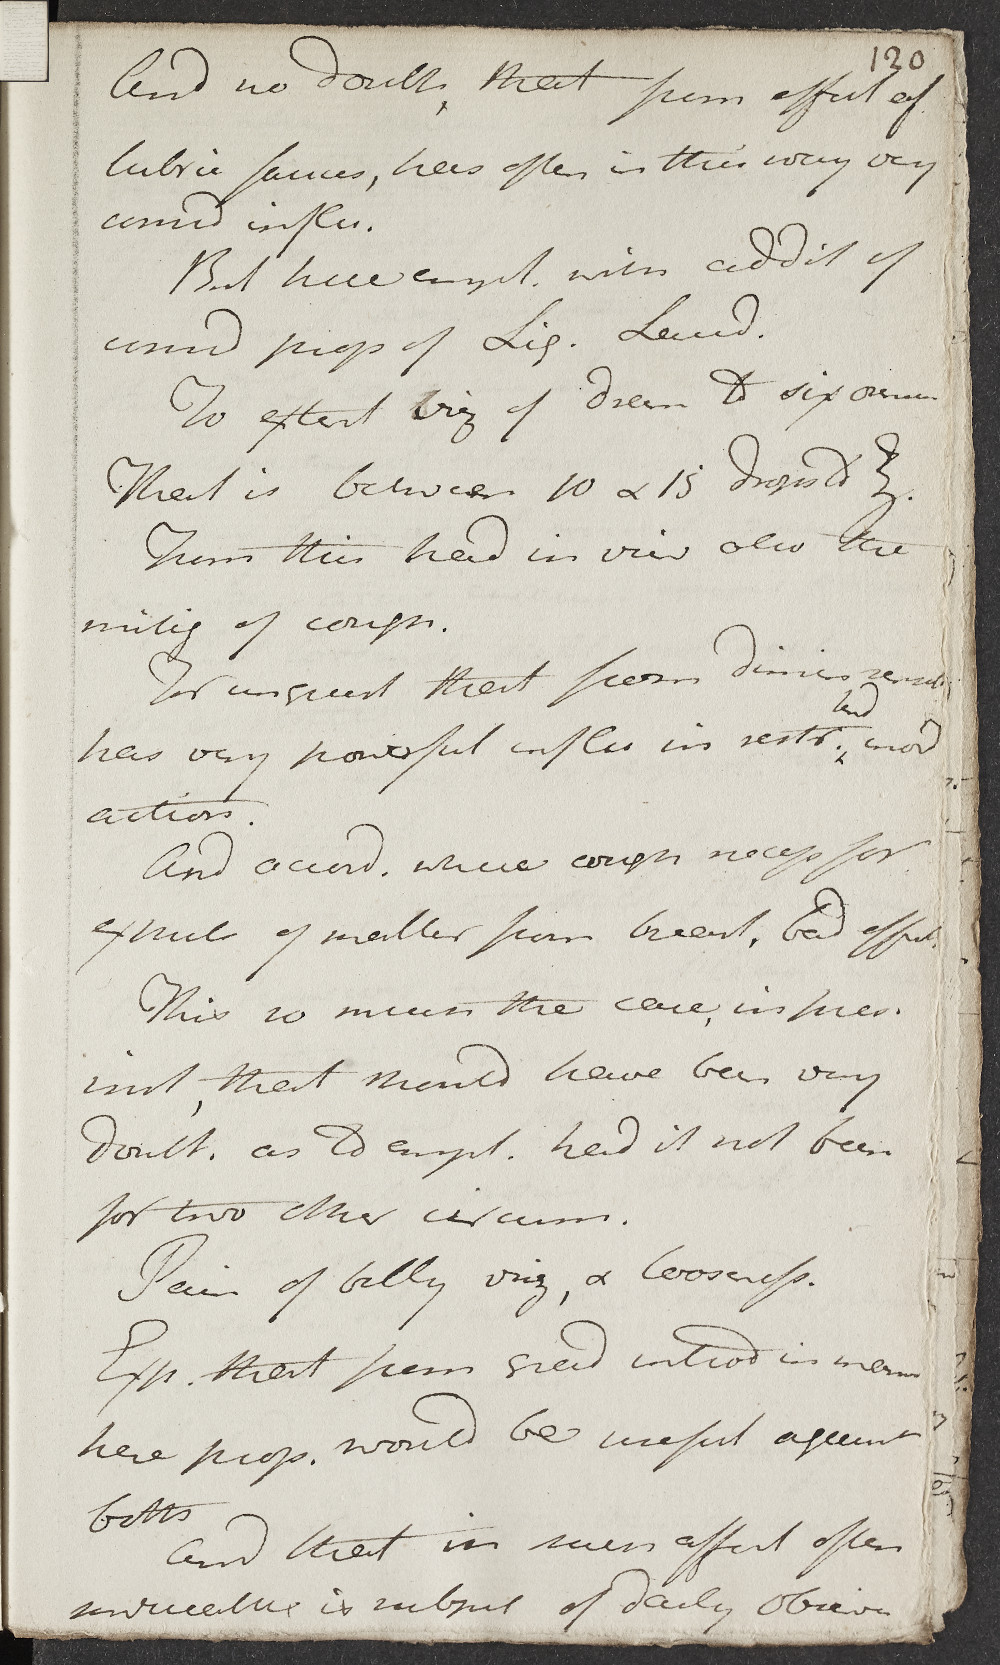 120
And no doubt, that from effect of
lubric fauces, has often in this way very
consid influ.
But here empl. with addit of
consid prop of Liq. Laud.
To extent viz of dram to six ounces
That is between 10 & 15 drops to ℥.
From this had in view also the
mitig of cough.
For unquest that from dimin sensib
has very powerful influ in restr. and mod
action.
And accord. where cough necess for
expuls of matter from breast, bad effect.
This so much the case, in pres.
inst, that should have been very
doubt. as to empl. had it not been
for two other circum.
Pain of belly viz, & looseness.
Exp. that from grad introd in mann
here prop. would be useful against
both
And that in such affect often
is subject of daily observ